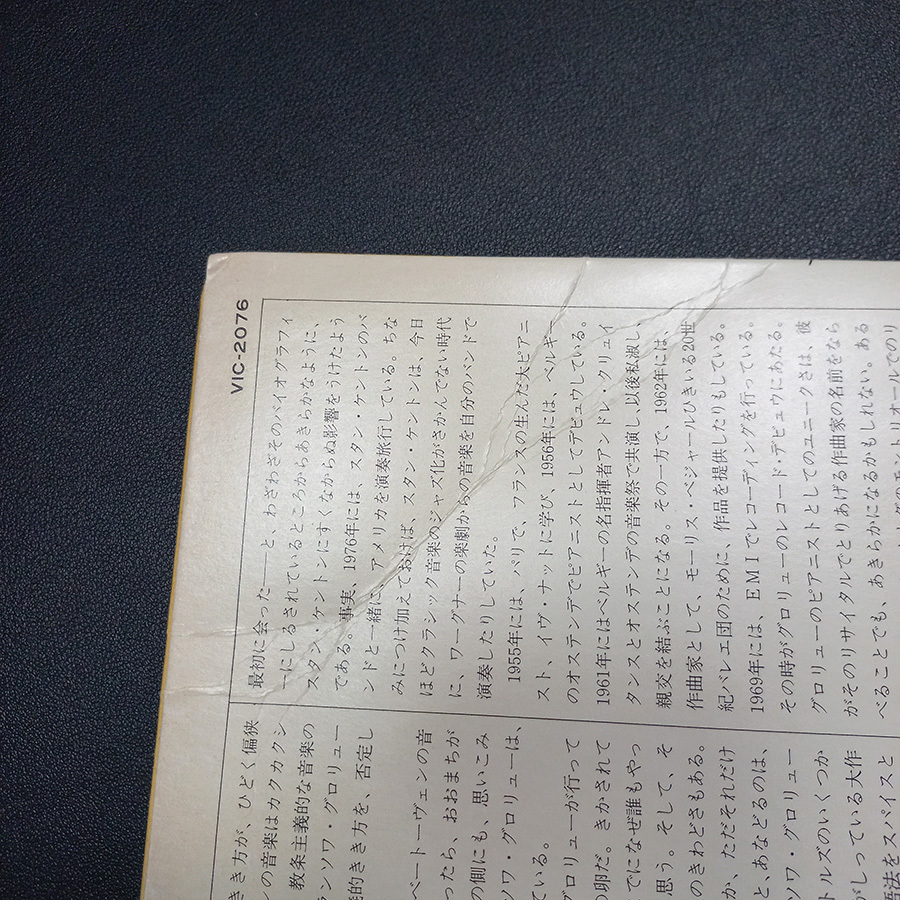 VIC-2076
きき方が、ひどく偏狭
しの音楽はカクカクシ
教条主義的な音楽の
ランソワ・グロリュー
的きき方を、否定し
ベートーヴェンの音
ったら、おおまちが
の側にも、思いこみ
ソワ・グロリューは、
ている。
グロリューが行って
の卵だ。きかされて
でになぜ誰もやっ
思う。そして、そ
のきわどさもある。
か、ただそれだけ
と、あなどるのは、
ソワ・グロリュー
トルズのいくつか
がしっている大作
語法をスパイスと
最初に会った――と、わざわざそのバイオグラフィ
ーにしるされているところからあきらかなように、
スタン・ケントンにすくなからぬ影響をうけたよう
である。事実、1976年には、スタン・ケントンのバ
ンドと一緒に、アメリカを演奏旅行している。ちな
みにつけ加えておけば、スタン・ケントンは、今日
ほどクラシック音楽のジャズ化がさかんでない時代
に、ワーグナーの楽劇からの音楽を自分のバンドで
演奏したりしていた。
1955年には、パリで、フランスの生んだ大ピアニ
スト、イヴ・ナットに学び、1956年には、ベルギー
のオステンデでピアニストとしてデビュウしている。
1961年にはベルギーの名指揮者アンドレ・クリュイ
タンスとオステンデの音楽祭で共演し、以後私淑し、
親交を結ぶことになる。その一方で、1962年には、
作曲家として、モーリス・ベジャールひきいる20世
紀バレエ団のために、作品を提供したりもしている。
1969年には、EMIでレコーディングを行っている。
その時がグロリューのレコード・デビュウにあたる。
グロリューのピアニストとしてのユニークさは、彼
がそのリサイタルでとりあげる作曲家の名前をなら
べることでも、あきらかになるかもしれない。ある
のモントリオールでのリ